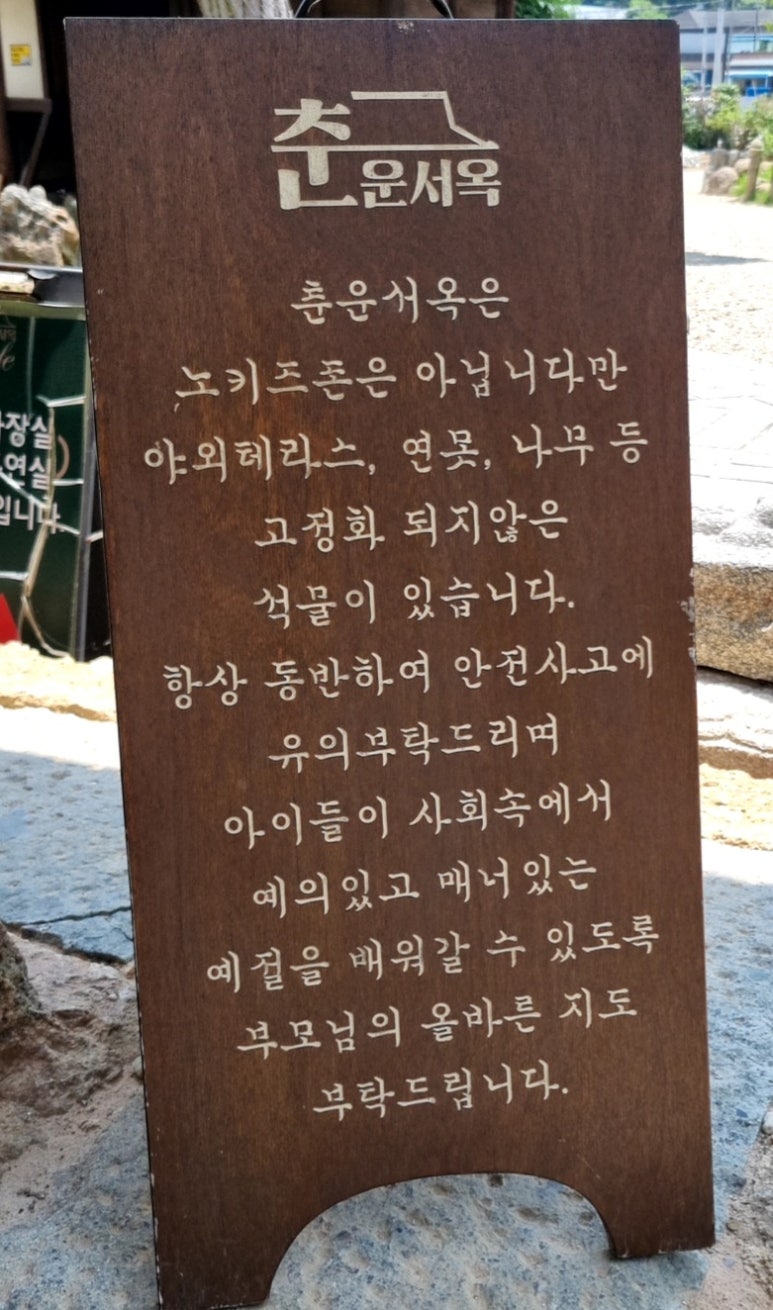 춘운서옥
춘운서옥은
노키즈존은 아닙니다만
야외테라스, 연못, 나무 등
고정화 되지않은
석물이 있습니다.
항상 동반하여 안전사고에
유의부탁드리며
아이들이 사회속에서
예의있고 매너있는
예절을 배워갈 수 있도록
부모님의 올바른 지도
부탁드립니다.
장실
연실
입니다.